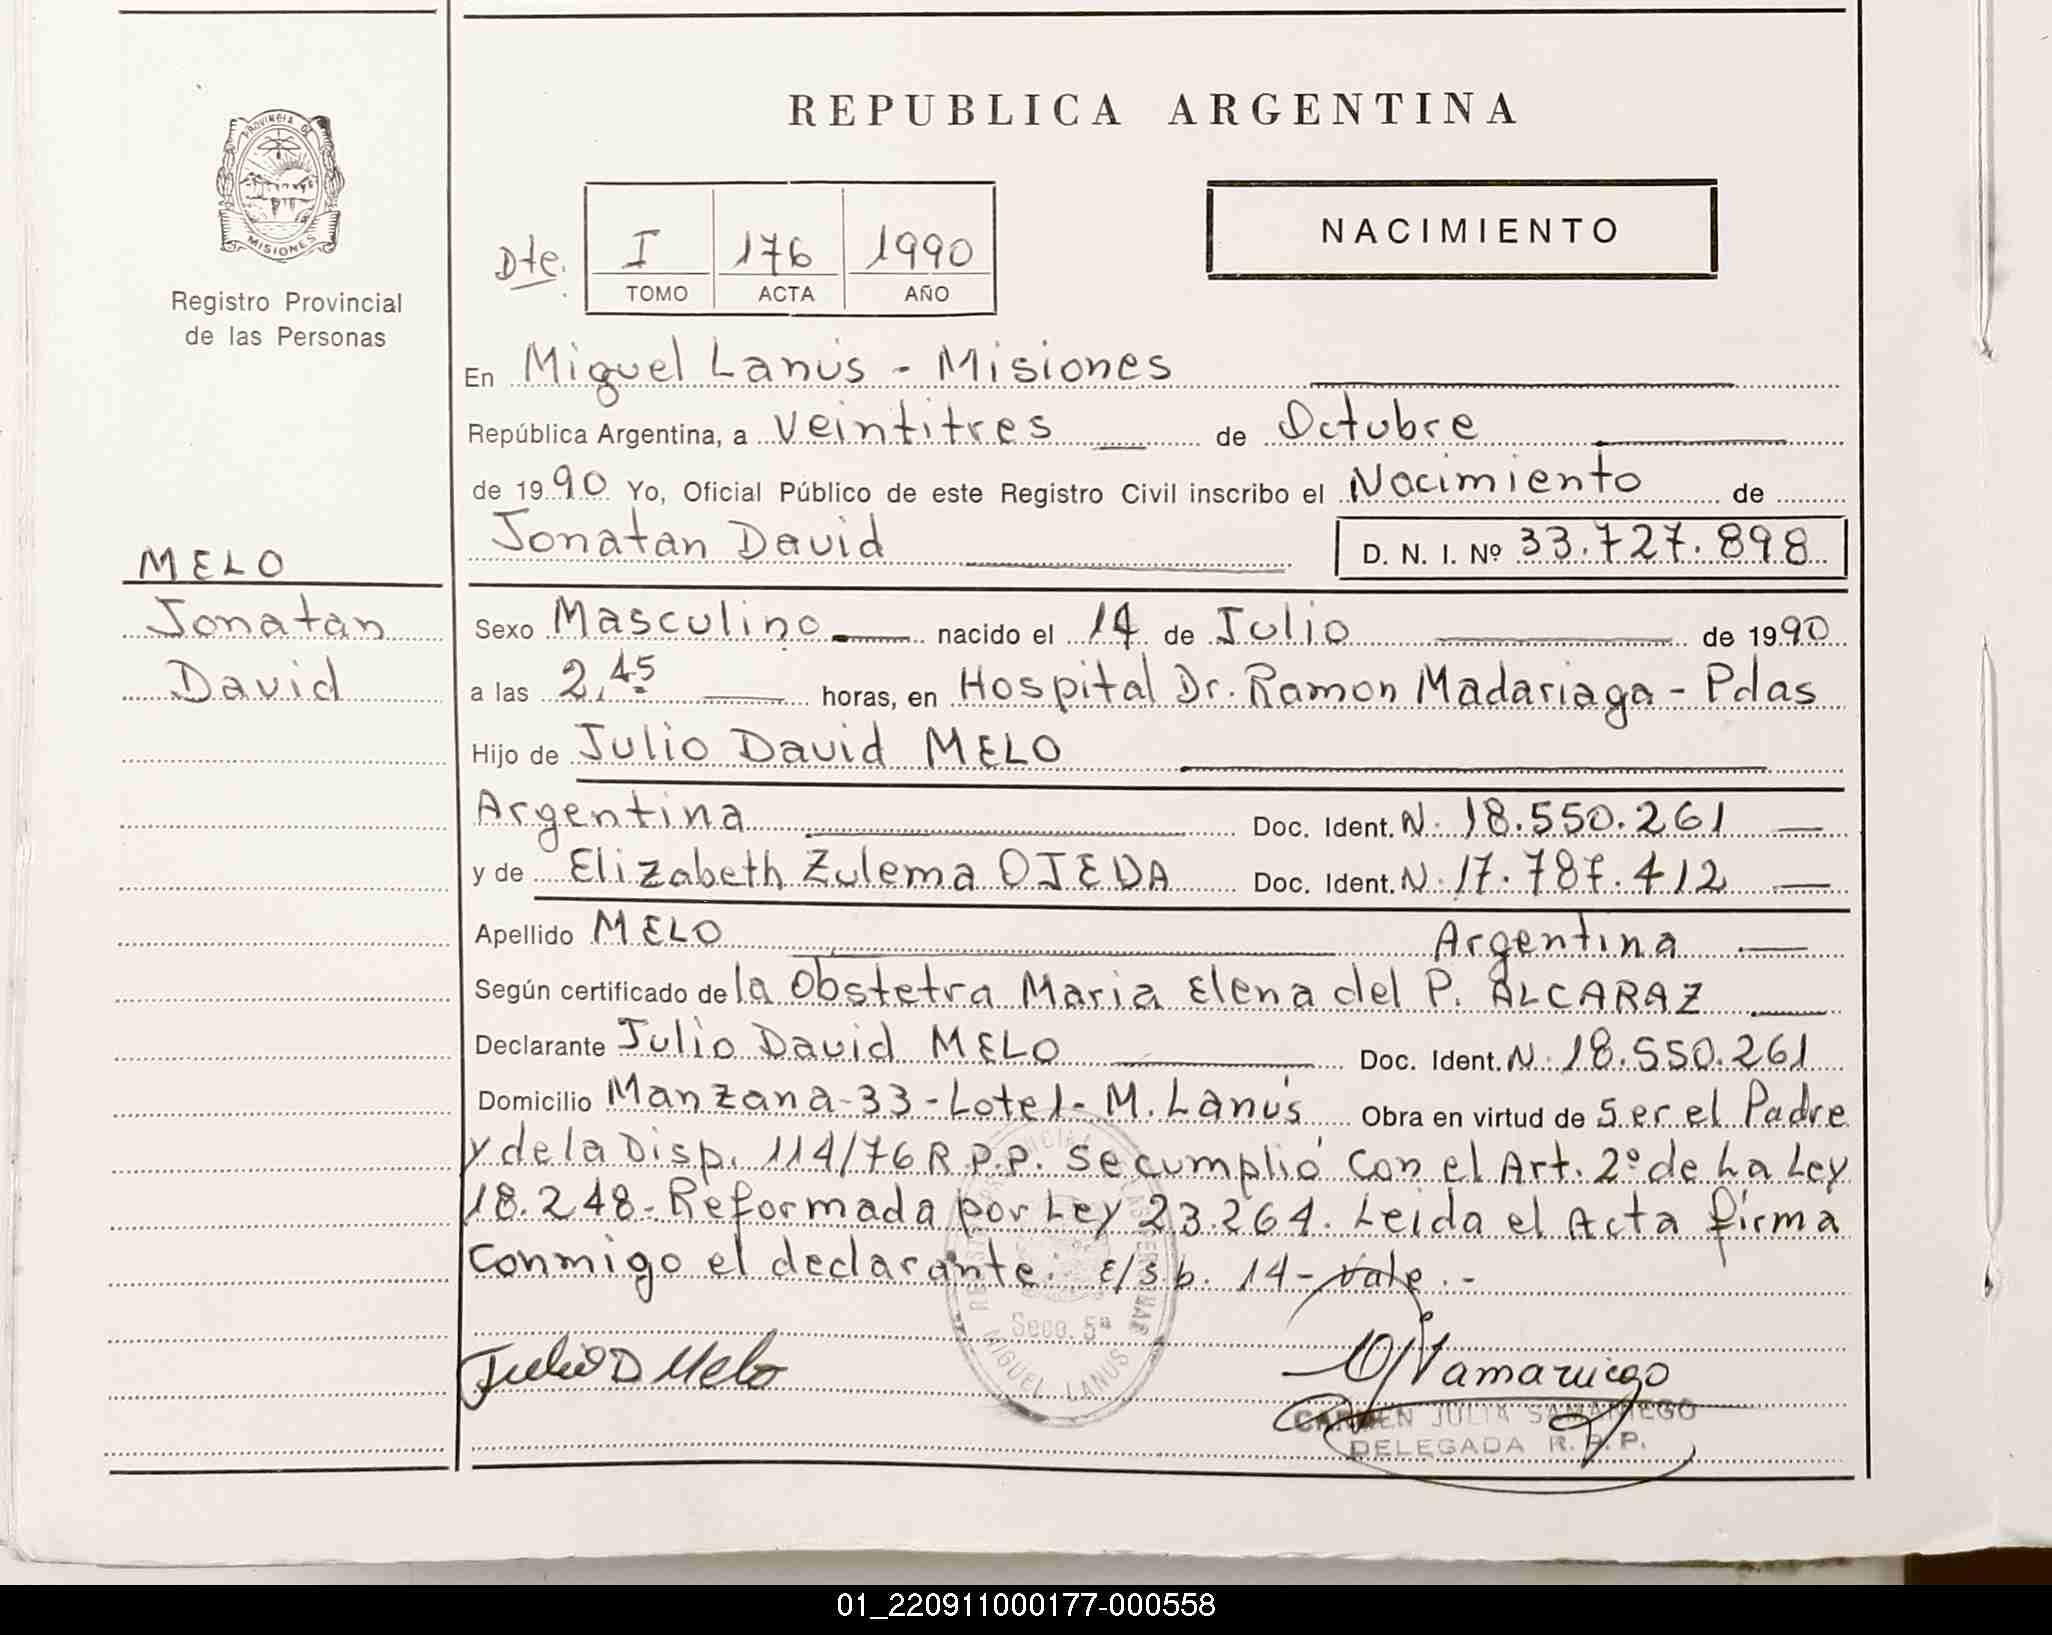 REPUBLICA ARGENTINA
PROVINCIA DE
MISIONES
Registro Provincial
de las Personas
NACIMIENTO
Dte. I 176 1990
TOMO ACTA AÑO
En Miguel Lanús - Misiones
República Argentina, a veintitres de Octubre
de 1990 Yo, Oficial Público de este Registro Civil inscribo el Nacimiento de
Jonatan David D. N. I. Nº 33.727.898
MELO
Jonatan
David
Sexo Masculino nacido el 14 de Julio de 1990
a las 2,45 horas, en Hospital Dr. Ramon Madariaga - Pdas
Hijo de Julio David MELO
Argentina Doc. Ident. N. 18.550.261
y de Elizabeth Zulema OJEDA Doc. Ident. N. 17.787.412
Apellido MELO Argentina
Según certificado de la Obstetra Maria Elena del P. ALCARAZ
Declarante Julio David MELO Doc. Ident. N. 18.550.261
Domicilio Manzana-33-Lote1- M. Lanús Obra en virtud de Ser el Padre
y de la Disp. 114/76 R.P.P. Se cumplió con el Art. 2º de La Ley
18.248- Reformada por Ley 23.264. Leida el Acta firma
conmigo el declarante. E/s.b. 14- Vale.-
Secc. 5ª
MIGUEL LANUS
Julio D Melo
CARMEN JULIA SAMANIEGO
DELEGADA R.P.P.
01_220911000177-000558